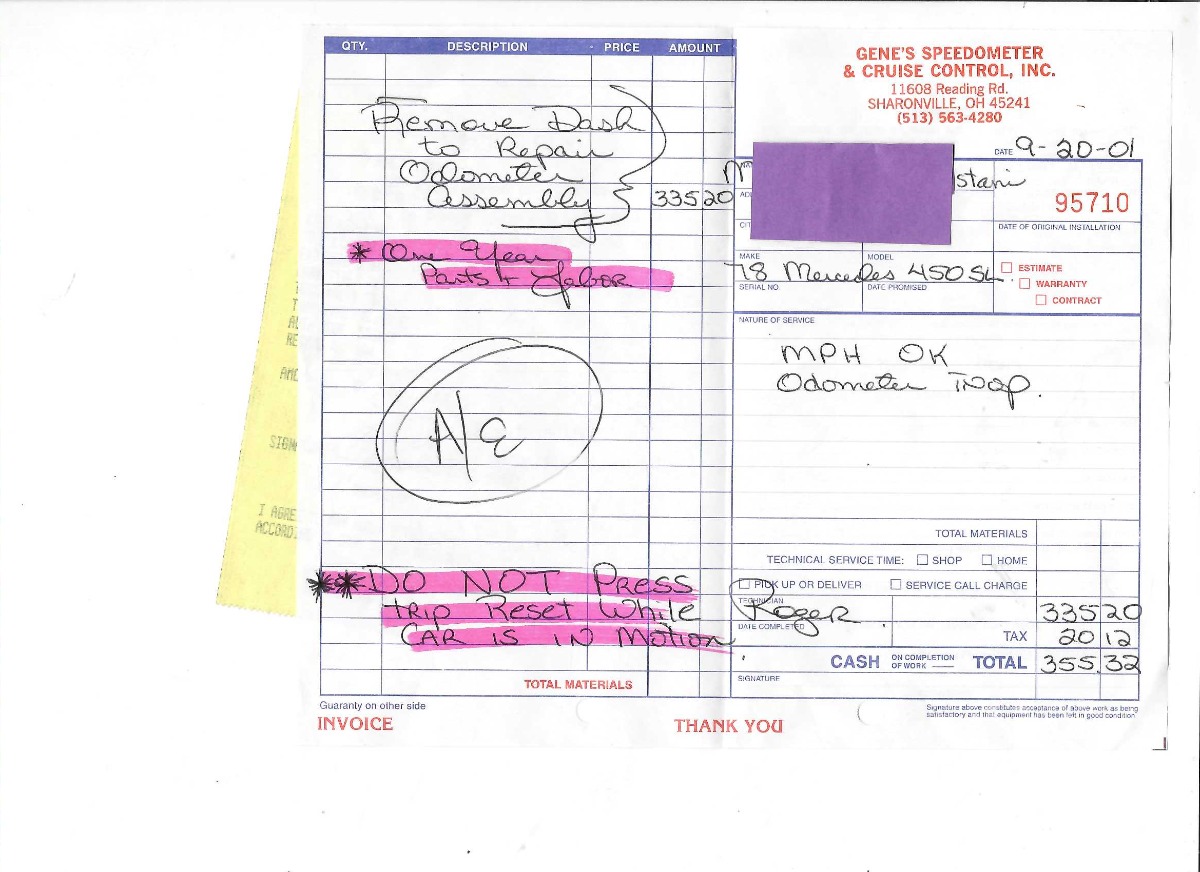 QTY. DESCRIPTION PRICE AMOUNT
Remove Dash
to Repair
Odometer
Assembly 335 20
* One Year
Parts + Labor
A/E
** DO NOT Press
trip Reset While
CAR is IN Motion
TOTAL MATERIALS
Guaranty on other side
INVOICE
THANK YOU
GENE'S SPEEDOMETER
& CRUISE CONTROL, INC.
11608 Reading Rd.
SHARONVILLE, OH 45241
(513) 563-4280
DATE 9-20-01
stani
95710
DATE OF ORIGINAL INSTALLATION
MAKE MODEL
78 Mercedes 450 SL
SERIAL NO. DATE PROMISED
ESTIMATE
WARRANTY
CONTRACT
NATURE OF SERVICE
MPH OK
Odometer INop.
TOTAL MATERIALS
TECHNICAL SERVICE TIME: SHOP HOME
PICK UP OR DELIVER SERVICE CALL CHARGE
TECHNICIAN
Roger 335 20
DATE COMPLETED
TAX 20 12
CASH ON COMPLETION OF WORK TOTAL 355.32
SIGNATURE
Signature above constitutes acceptance of above work as being
satisfactory and that equipment has been left in good condition.
RE
AMO
SIGN
I AGRE
ACCORD